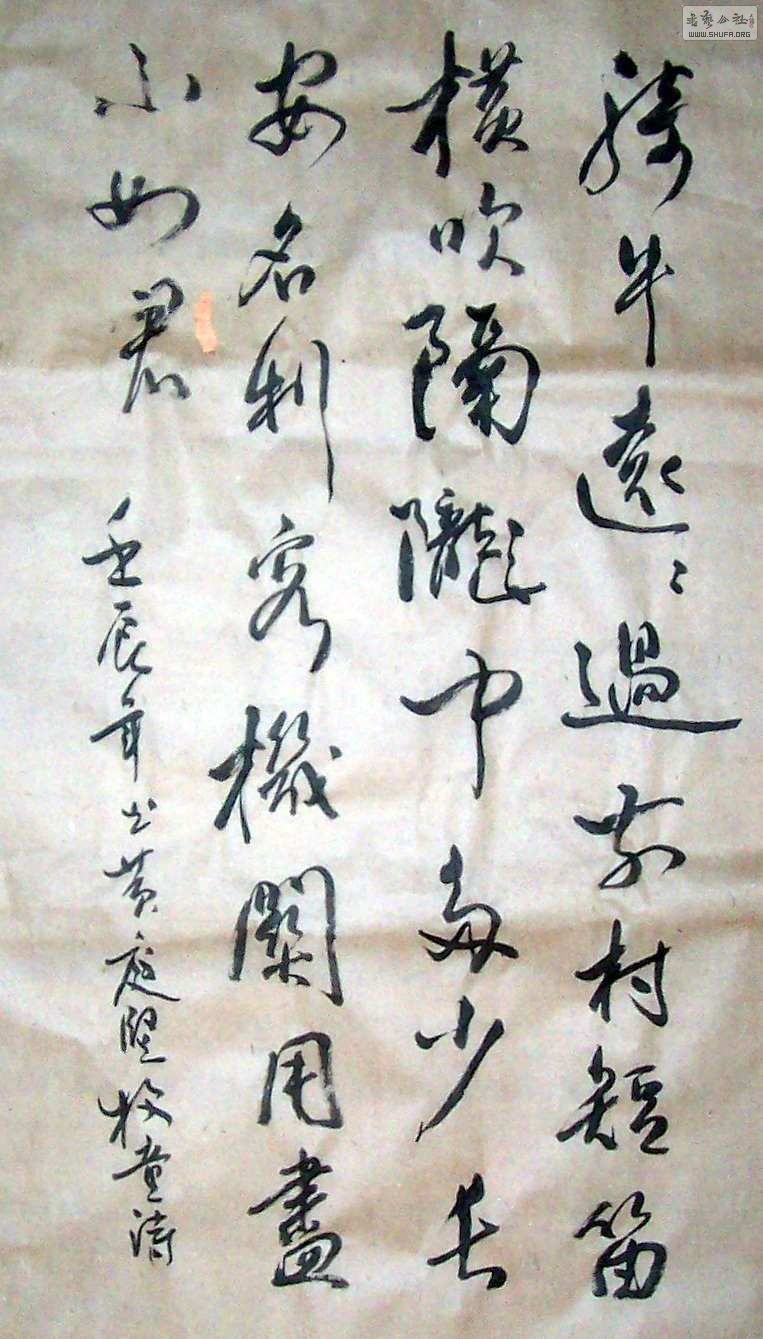 騎牛遠〻過前村短笛
橫吹隔隴中多少長
安名利客機關用盡
不如君
壬辰年书黄庭堅牧童詩
書藝公社
WWW.SHUFA.ORG